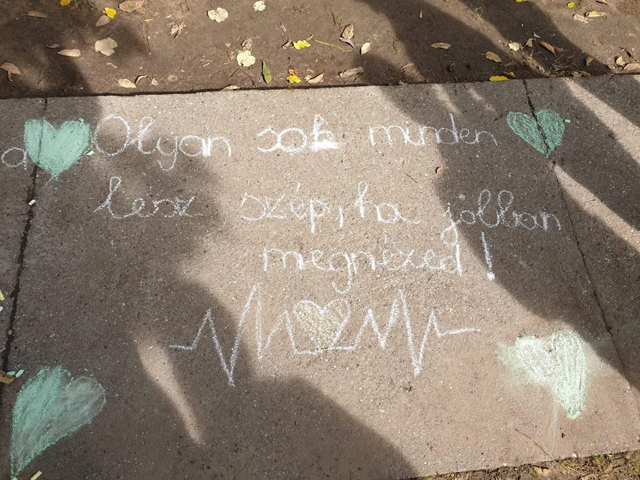 a Olyan sok minden
lesz szép, ha jobban
megnézed!